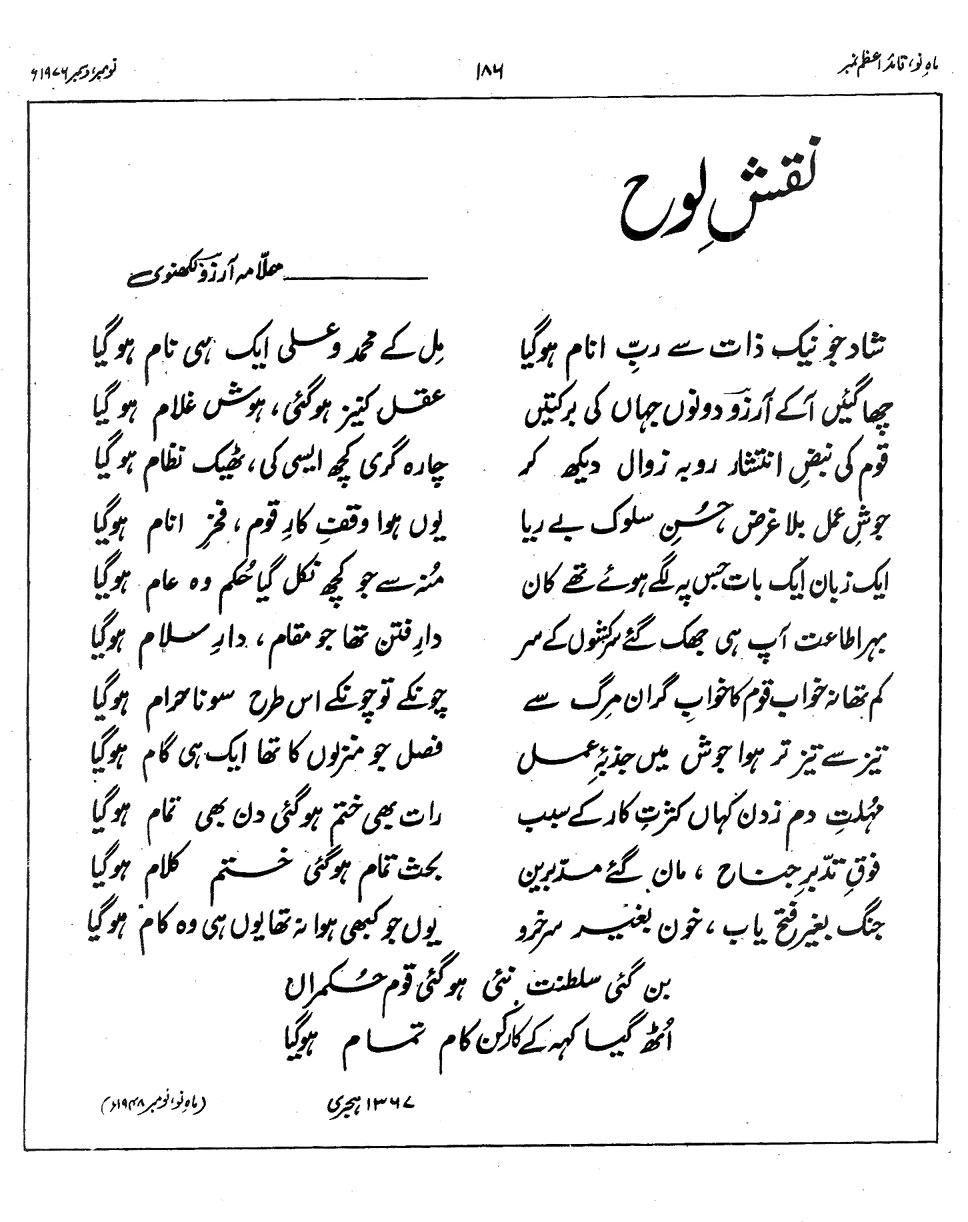 ماہِ نو، قائد اعظم نمبر
۱۸۶
نومبر، دسمبر ۱۹۷۶ء
نقشِ لوح
علامہ آرزوؔ لکھنوی
شاد جو نیک ذات سے ربِّ انام ہوگیا مِل کے محمد و علی ایک ہی نام ہوگیا
چھا گئیں آکے آرزوؔ دونوں جہاں کی برکتیں عقل کنیز ہوگئی، ہوش غلام ہوگیا
قوم کی نبضِ انتشار روبہ زوال دیکھ کر چارہ گری کچھ ایسی کی، ٹھیک نظام ہوگیا
جوشِ عمل بلا غرض، حسنِ سلوک بے ریا یوں ہوا وقفِ کارِ قوم، فخرِ انام ہوگیا
ایک زبان ایک بات جس پہ لگے ہوئے تھے کان مُنہ سے جو کچھ نکل گیا حُکم وہ عام ہوگیا
بہر اطاعت آپ ہی جھک گئے سرکشوں کے سر دارِ فتن تھا جو مقام، دارِ سلام ہوگیا
کم تھا نہ خواب قوم کا خوابِ گران مرگ سے چونکے تو چونکے اس طرح سونا حرام ہوگیا
تیز سے تیز تر ہوا جوش میں جذبۂ عمل فصل جو منزلوں کا تھا ایک ہی گام ہوگیا
مُہلتِ دم زدن کہاں کثرتِ کار کے سبب رات بھی ختم ہوگئی دن بھی تمام ہوگیا
فوقِ تدّبرِ جناح، مان گئے مدّبرین بحث تمام ہوگئی ختم کلام ہوگیا
جنگ بغیر فتح یاب، خون بغیر سرخرو یوں جو کبھی ہوا نہ تھا یوں ہی وہ کام ہوگیا
بن گئی سلطنت نئی ہوگئی قوم حُکمراں
اُٹھ گیا کہہ کے کارکن کام تمام ہوگیا
۱۳۶۷ ہجری
(ماہِ نو، نومبر ۱۹۴۸ء)